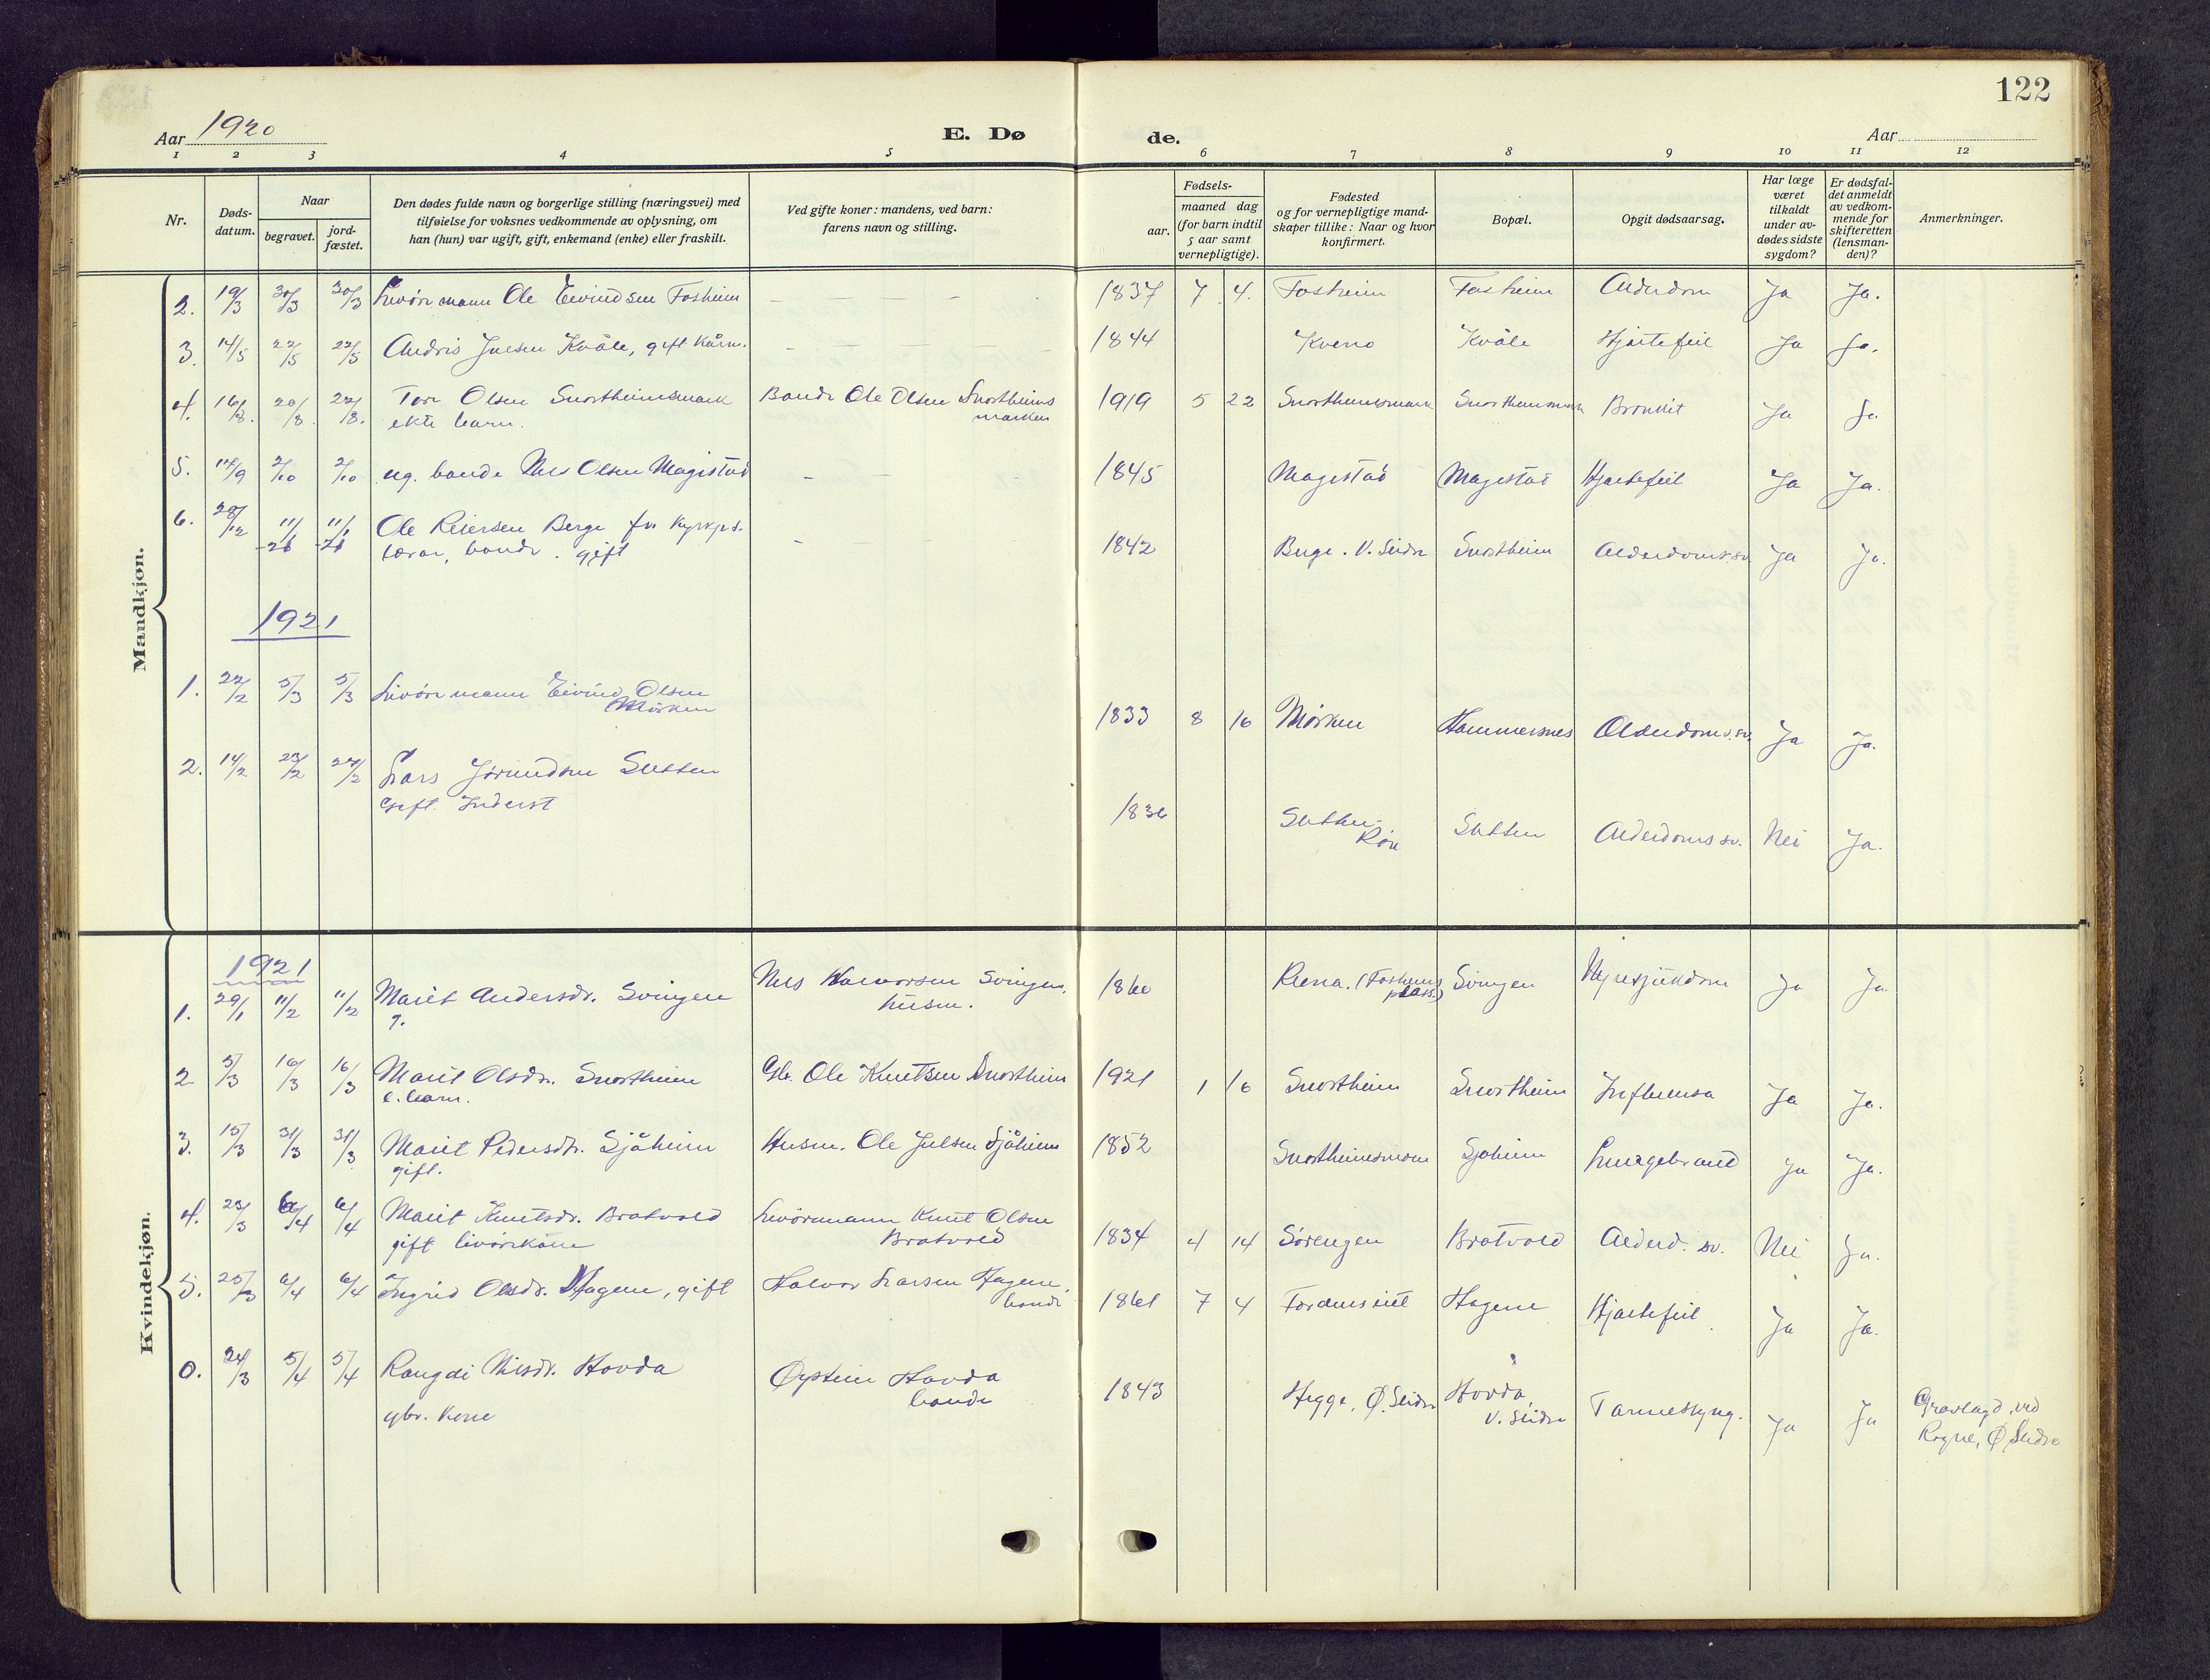 122
Aar 1920
E. Dø
de.
Aar
1 2 3 4 5 6 7 8 9 10 11 12
Nr.
Døds-
datum.
Naar
begravet.
jord-
fæstet.
Den dødes fulde navn og borgerlige stilling (næringsvei) med
tilføielse for voksnes vedkommende av oplysning, om
han (hun) var ugift, gift, enkemand (enke) eller fraskilt.
Ved gifte koner: mandens, ved barn:
farens navn og stilling.
Fødsels-
aar.
maaned dag
(for barn indtil
5 aar samt
vernepligtige).
Fødested
og for vernepligtige mand-
skaper tillike: Naar og hvor
konfirmert.
Bopæl.
Opgit dødsaarsag.
Har læge
været
tilkaldt
under av-
dødes sidste
sygdom?
Er dødsfal-
det anmeldt
av vedkom-
mende for
skifteretten
(lensman-
den)?
Anmerkninger.
Mandkjøn.
2. 19/3 30/3 30/3 Livöremann Ole Eivindsen Fosheim 1837 7 4. Fosheim Fosheim Alderdom Ja Ja.
3. 14/5 22/5 22/5 Andris Julsen Kvåle, gift Kårm. 1844 Kveno Kvåle Hjartefeil Ja Ja.
4. 16/8. 20/8. 22/8. Tore Olsen Snortheimsmark Bonde Ole Olsen Snortheims 1919 5 22 Snortheimsmark Snortheimsmark Bronkit Ja Ja
ekte barn. marken
5. 17/9 2/10 2/10 ug. bonde Nils Olsen Magistad 1845 Magistad Magistad Hjartefeil Ja Ja.
6. 28/12 11/1 11/1 Ole Reiersen Berge fv. Kyrkjes.
-21 -21 lærar, bonde. gift 1842 Berge. V. Slidre Snortheim Alderdoms.sv. Ja Ja.
1921
1. 22/2 5/3 5/3 Livöremann Eivind Olsen
Mörken 1833 8 16 Mörken Hammersnes Alderdoms.sv. Ja Ja.
2. 14/2 23/2 23/2 Lars Jörundsen Sletten
Gift. Inderst 1836 Sletten Sletten Alderdoms sv. Nei Ja.
Röre
Kvindekjøn.
1921
1. 29/1 11/2 11/2 Marit Andersdr. Svingen Nils Halvorsen Svingen, 1860 Svingen Nyresjukdom Ja Ja
g. husm.
2 5/3 16/3 16/3 Marit Olsdr. Snortheim Gb. Ole Knutsen Snortheim 1921 1 16 Snortheim Snortheim Influensa Ja Ja.
e. barn.
3. 15/3 31/3 31/3 Marit Pedersdtr. Sjåheim Husm. Ole Julsen Sjåheim 1852 Sjåheim Lungebrand Ja Ja.
gift.
4. 23/3 6/4 6/4 Marit Knutsdr. Bratvold Livöremann Knut Olsen
gift livörekone Bratvold 1834 4 14 Sörengen Bratvold Alderd. sv. Nei Ja.
5. 25/3 6/4 6/4 Ingrid Olsdr. Hagene, gift Halvor Larsen Hagene, 1861 7 4 Hagene Hjartefeil Ja Ja.
bonde
0. 24/3 5/4 5/4 Rangdi Nilsdr. Hovda Øystein Hovda 1843 Hegge, Ø. Slidre Hovda, Tarmeslyng. Ja Ja Gravlagd ved
gbr. kone bonde V. Slidre Rogne, Ø. Slidre